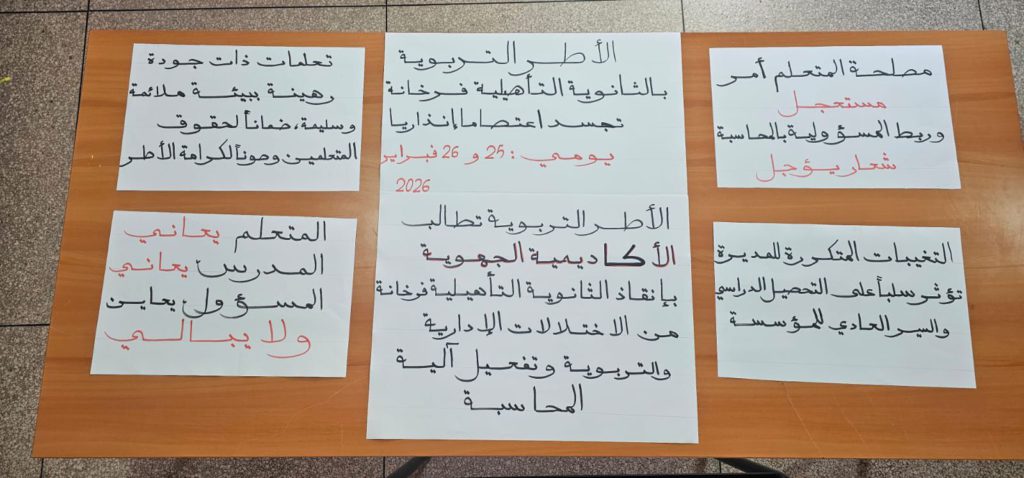 الأطر التربوية
بالثانوية التأهيلية فرخانة
تجسد اعتصاما إنذاريا
يومي : 25 و 26 فبراير
2026
الأطر التربوية تطالب
الأكاديمية الجهوية
بإنقاذ الثانوية التأهيلية فرخانة
من الاختلالات الإدارية
والتربوية وتفعيل آلية
المحاسبة
مصلحة المتعلم أمر
مستعجل
وربط المسؤولية بالمحاسبة
شعار يؤجل
التغيبات المتكررة للمديرة
تؤثر سلباً على التحصيل الدراسي
والسير العادي للمؤسسة
تعلمات ذات جودة
رهينة ببيئة ملائمة
وسليمة، ضماناً لحقوق
المتعلمين وصوناً لكرامة الأطر
المتعلم يعاني
المدرس يعاني
المسؤول يعاين
ولا يبالي